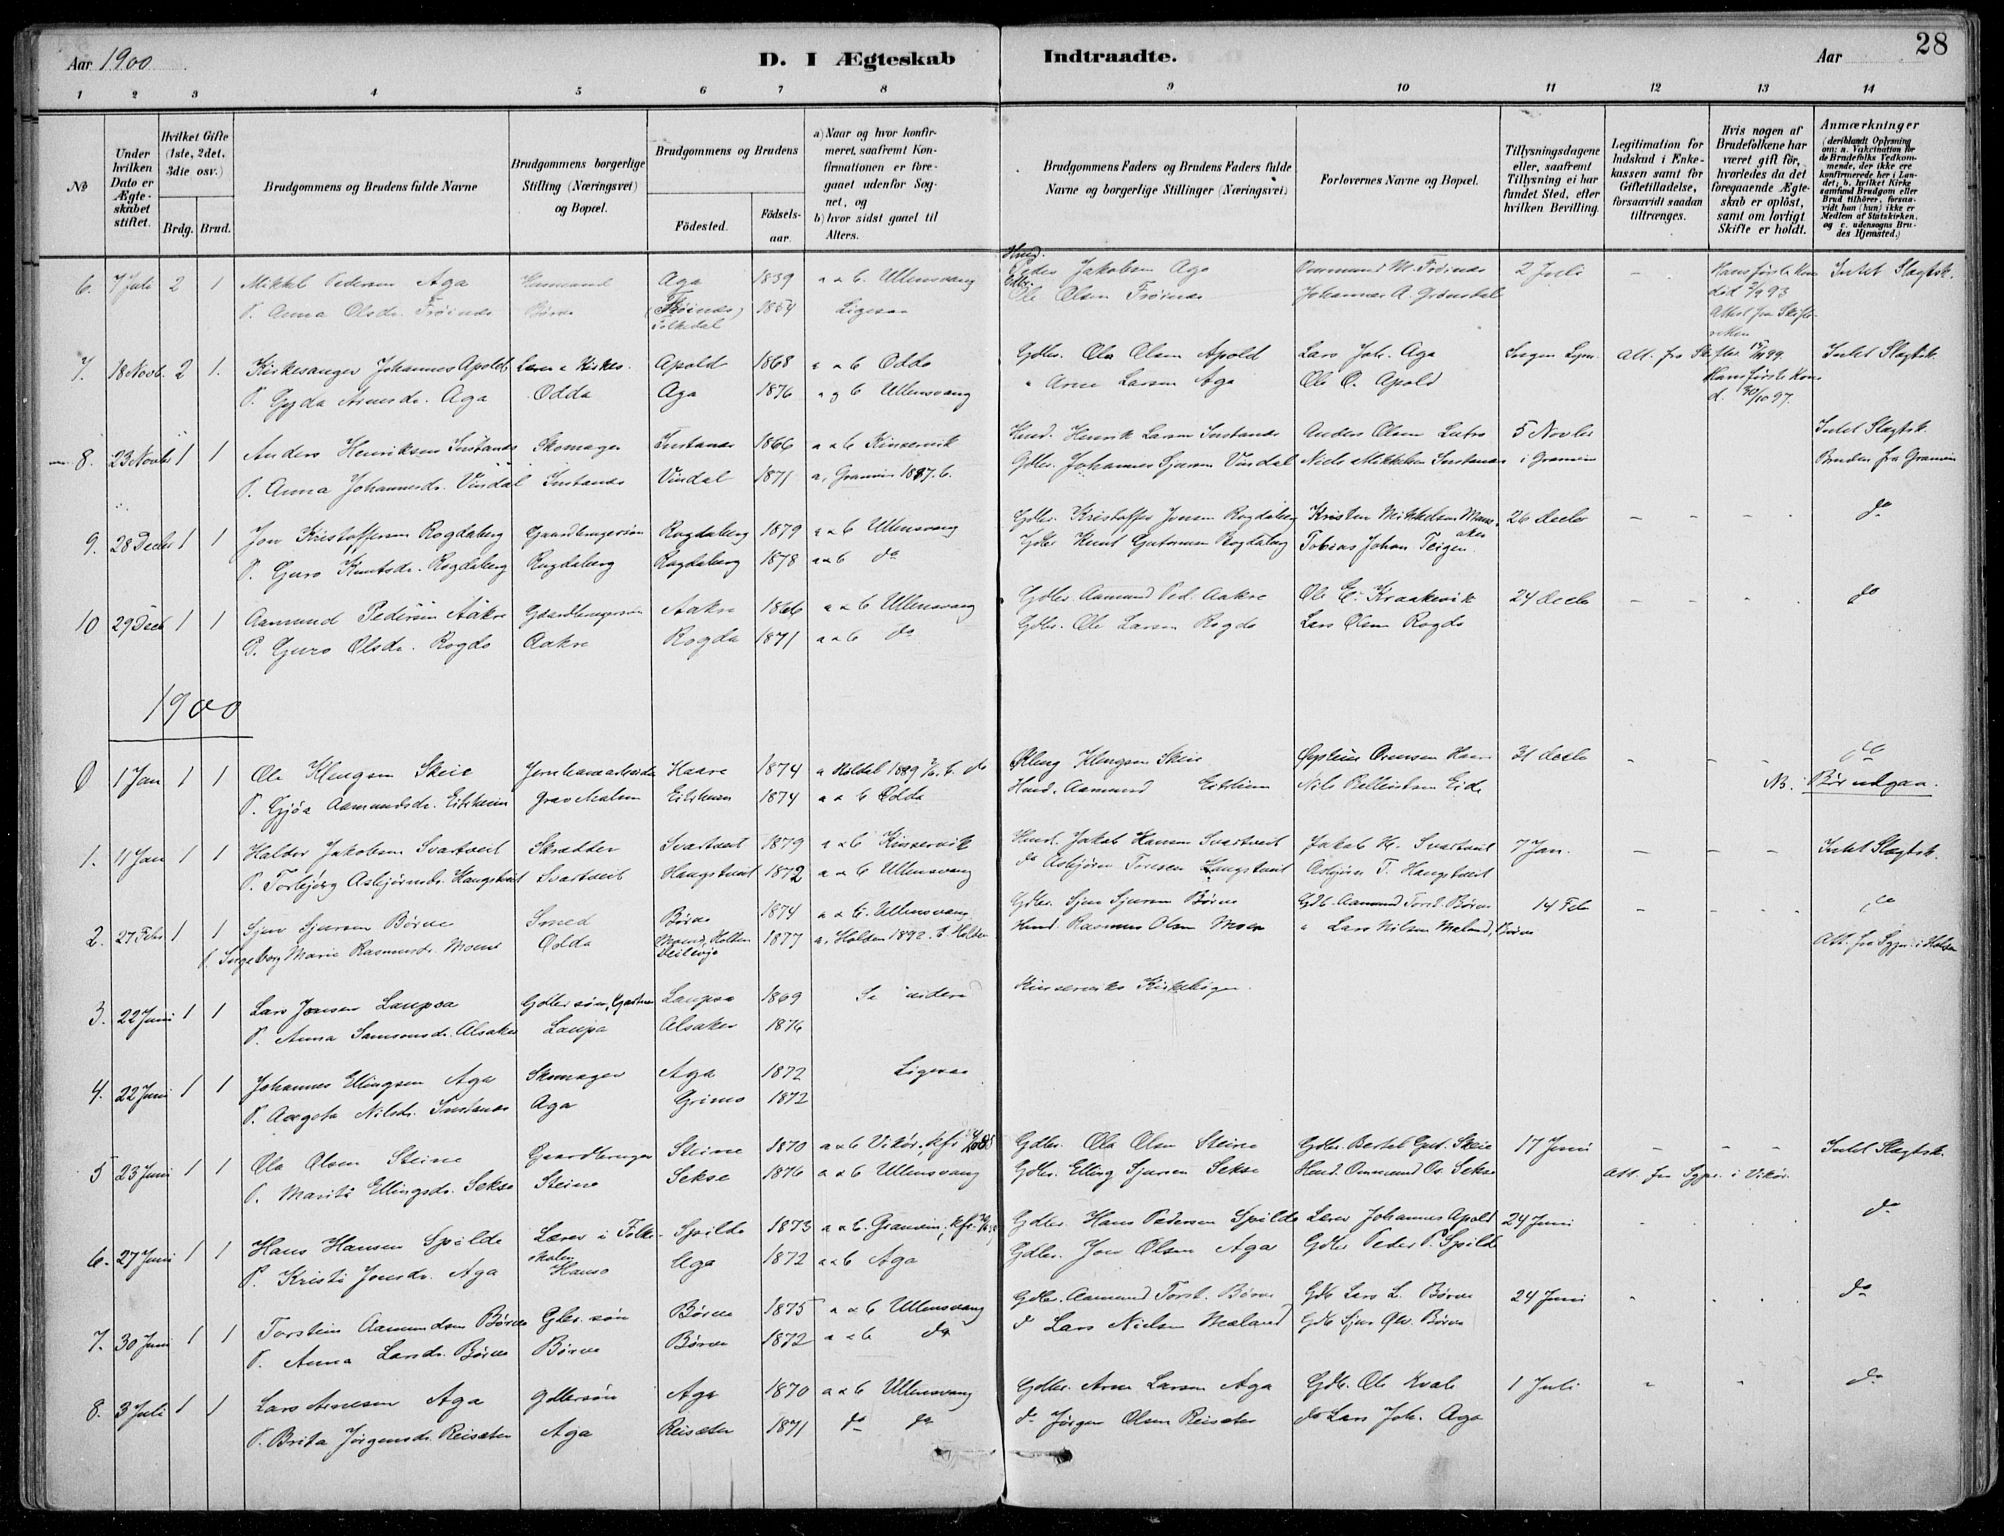 28
Aar 1900
D. I Ægteskab Indtraadte.
Aar
1 2 3 4 5 6 7 8 9 10 11 12 13 14
№
Under hvilken Dato er Ægteskabet stiftet.
Hvilket Gifte (1ste, 2det, 3die osv.)
Brdg. Brud.
Brudgommens og Brudens fulde Navne
Brudgommens borgerlige Stilling (Næringsvei) og Bopæl.
Brudgommens og Brudens
Fødested. Fødselsaar.
a) Naar og hvor konfirmeret, saafremt Konfirmationen er foregaaet udenfor Sognet, og
b) hvor sidst gaaet til Alters.
Brudgommens Faders og Brudens Faders fulde Navne og borgerlige Stillinger (Næringsvei).
Forlovernes Navne og Bopæl.
Tillysningsdagene eller, saafremt Tillysning ei har fundet Sted, efter hvilken Bevilling.
Legitimation for Indskud i Enkekassen samt for Giftetilladelse, forsaavidt saadan tiltrænges.
Hvis nogen af Brudefolkene har været gift før, hvorledes da det foregaaende Ægteskab er opløst, samt om lovligt Skifte er holdt.
Anmærkninger (deriblandt Oplysning om: a. Vakcination for de Brudefolks Vedkommende, der ikke ere konfirmerede her i Landet; b. hvilket Kirkesamfund Brudgom eller Brud tilhører, forsaavidt han (hun) ikke er Medlem af Statskirken. og c. udensogns Brudes Hjemsted.)
6. 7 Juli 2 1 Mikkel Pedersen Aga Husmand Aga 1839 a & b Ullensvang Husd. Peder Jakobsen Aga Ommund M. Frøinæs 2 Juli - Hans første Kone død 2/9 93 Intet Slagtsk.
P. Anna Olsdr. Frøinæs Børve (Frøinæs) Folkedal 1854 Ligesaa Gdbr. Ole Olsen Frøinæs Johannes A. Grønsdal Attest fra Skifteretten
7. 18 Novb. 2 1. Kirkesanger Johannes Apold Lærer & Kirkes. Apold 1868 a & b Odda Gdbr. Ola Olsen Apold Lars Joh. Aga Ingen Lysn. Att. fra Skifter. 17/11 99. Intet Slagtsk.
P. Gyda Arnesdr. Aga Odda Aga 1876 a og b Ullensvang " Arne Larsen Aga Ole O. Apold Hans første Kone d. 30/10 97.
8. 23 Novbr 1 1 Anders Henriksen Instanæs Skomager Instanæs 1866 a & b Kinservik Husd. Henrik Larsen Instanæs Anders Olsen Lutro 5 Novbr Intet Slagtsk.
P. Anna Johannesdr. Vindal Instanæs Vindal 1871 a, Granvin 1887. b. Gdbr. Johannes Sjursen Vindal Niels Mikkelsen Instanæs i Granvin Bruden fra Granvin
9. 28 Decbr 1 1 Jon Kristoffersen Rogdaberg Gaardbrugersøn Rogdaberg 1879 a & b Ullensvang Gdbr. Kristoffer Jonsen Rogdaberg Kristen Mikkelsen Mansaker 26 Decbr - - - do
P. Guro Knutsdr. Rogdaberg Rogdaberg Rogdaberg 1878 a & b do Gdbr Knut Guttormsen Rogdaberg Tobias Johan. Teigen
10 29 Decb 1 1 Aamund Pedersen Aakre Gaardbrugersøn Aakre 1866 a & b Ullensvang Gdbr. Aamund Ped. Aakre Ole E. Kraakevik 24 Decbr - - . do
P. Guro Olsdr. Rogdo Aakre Rogdo 1871 a & b do Gdbr. Ole Larsen Rogdo Lars Olsen Rogdo
1900
0 1 Jan 1 1 Ole Klengsen Skeie Jernbanearbeider Haare 1874 a Røldal 1889 b. do Kleng Klengsen Skeie Øystein Ormsen Haare 31 Decbr - - do
P. Gjøa Aamundsdr. Eitrheim Grav Malm Eitrheim 1874 a & b Odda Husd. Aamund Eitrheim Nils Pelleistsen Eide NB. Bør udgaa.
1. 11 Jan 1 1 Haldor Jakobsen Svartveit Skrædder Svartveit 1879 a & b Kinservik Husd. Jakob Hansen Svartveit Jakob H. Svartveit 7 Jan. - - - Intet Slagtsk.
P. Torbjørg Asbjørnsdr. Hangstveit Svartveit Hangstveit 1872 a & b Ullensvang do Asbjørn Toresen Langstveit Asbjørn T. Hangstveit
2. 27 Febr 1 1 Sjur Sjursen Børve Smed Børve 1874 a & b. Ullensvang Gdbr. Sjur Sjursen Børve Gdb. Aamund Torst. Børve 14 Feb - - - do
P. Ingeborg Marie Rasmusdr. Moen Odda Moen, Holden 1877 a, Holden 1892. b. Holden Husd. Rasmus Olsen Moen " Lars Nilsen Mæland, Børve Att. fra Sgpr. i Holden
3. 22 Juni 1 1 Lars Jonsen Laupsa Gdbrsøn, Gartner Laupsa 1869 Se videre Kinserviks Kirkebøger.
P. Anna Samsonsdr. Alsaker Laupsa Alsaker 1876
4. 22 Juni 1 1 Johannes Ellingsen Aga Skomager Aga 1872 Ligesaa
P. Aagota Nilsdr. Instanæs Aga Grimo 1872
5 23 Juni 1 1 Ola Olsen Steine Gaardbruger Steine 1870 a & b Vikør, kfr Gdbr. Ola Olsen Steine Gdbr. Bertel Gut. Skeie 17 Juni - - - Intet Slagtsk.
P. Marita Ellingsdr. Sekse Steine Sekse 1876 a & b Ullensvang Gdbr. Elling Sjursen Sekse Husd. Ommund Os. Sekse Att. fra Sgpr. i Vikør.
6. 27 Juni 1 1 Hans Hansen Spilde Lærer i Folkeskolen Spilde 1873 a & b. Granvin, kfr. Gdbr. Hans Pedersen Spilde Lærer Johannes Apold 24 Juni do
P. Kristi Jonsdr. Aga Hauso Aga 1872 a & b Aga Gdbr. Jon Olsen Aga Gdbr Peder P. Spilde
7. 30 Juni 1 1 Torstein Aamundsen Børve Gbr. søn Børve 1875 a & b Ullensvang Gdbr. Aamund Torst. Børve Gdb Lars L. Børve 24 Juni do
P. Anna Larsdr. Børve Børve Børve 1872 a & b do do Lars Nielsen Mæland Gdb Sjur Børve
8. 3 Juli 1 1 Lars Arnesen Aga Gdbrsøn Aga 1870 a & b Ullensvang Gdbr. Arne Larsen Aga Gdb. Ole Kvale 1 Juli do
P. Brita Jørgensdr. Reisæter Aga Reisæter 1871 do do do Jørgen Olsen Reisæter do Lars Joh. Aga